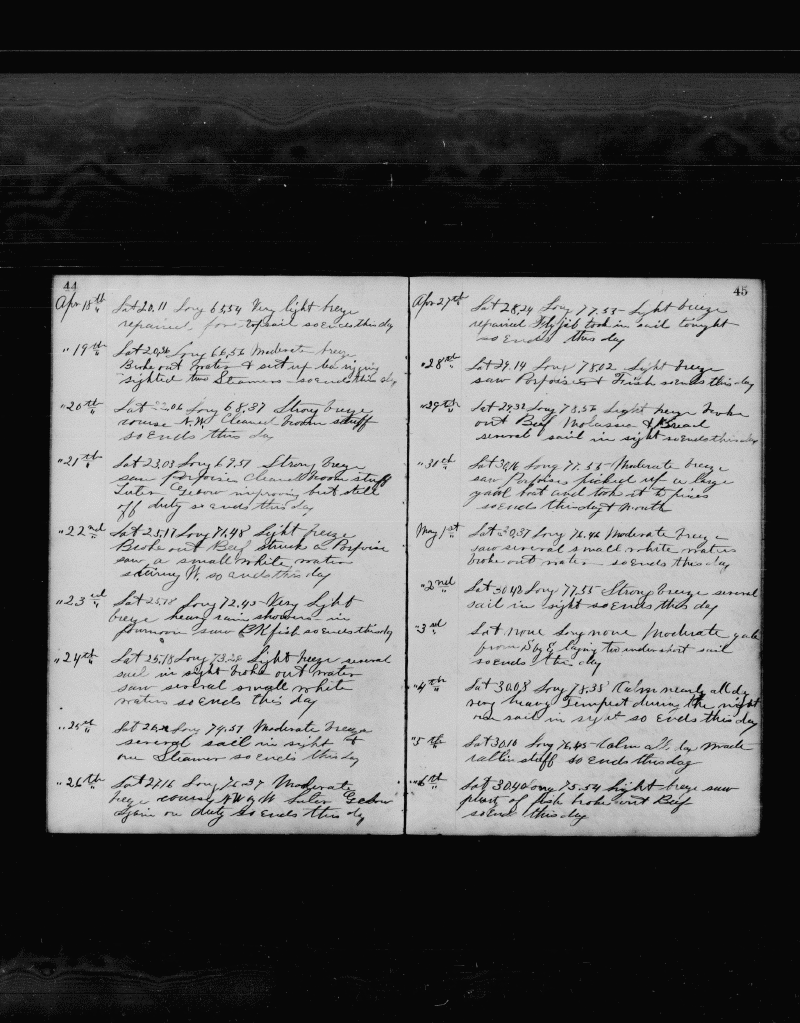 44
Apr 18th Lat 20,11 Long 65,54 Very light breze
repaired for topsail so ends this day
"19th Lat 20,36 Long 66,56 Moderate breze
Broke out water & set up rigging
sighted two Steamers so ends this day
"20th Lat Long 68,37 Strong breze
course N.W. Cleaned broom stuff
so ends this day
"21st Lat 23,03 Long 69,51 Strong breze
saw Porpoises cleaned broom stuff
improving but still
off duty so ends this day
"22nd Lat 25,17 Long 71,48 Light breeze
Broke out Beef struck a Porpoise
saw a small white water
W, so ends this day
"23rd Lat 25,18 Long 72,45 Very Light
breze heavy rain showers in
forenoon saw BKfish so ends this day
"24th Lat 25,18 Long Light breze several
sail in sight broke out water
saw several small white
waters so ends this day
"25th Lat Long 74,51 Moderate breze
several sail in sight &
one Steamer so ends this day
"26th Lat 27,16 Long Moderate
breze course NW by W
again on duty so ends this day
45
Apr 27th Lat 28,24 Long 77,53 Light breeze
repaired Fly jib took in sail tonight
so ends this day
"28th Lat 29,14 Long 78,02 Light breze
saw Porpoises & so ends this day
"29th Lat 29,32 Long 78,56 Light breze broke
out Beef Molasses & Bread
several sail in sight so ends this day
"31st Lat 30,16 Long 77,56 Moderate breeze
saw Porpoises picked up a large
yawl boat and took it to pieces
so ends this day & Month
May 1st Lat 30,37 Long 76,46 Moderate breeze
saw several small white waters
broke out water so ends this day
"2nd Lat 30,48 Long 77,55 Strong breeze several
sail in sight so ends this day
"3rd Lat none Long none Moderate gale
from S by E laying to under short sail
so ends this day
"4th Lat 30,08 Long 78,35 Calm nearly all day
very heavy Tempest during the night
one sail in sight so Ends this day
"5th Lat 30,10 Long 76,45 Calm all day made
ratlin stuff so ends this day
"6th Lat 30,40 Long 75,54 Light breze saw
plenty of fish broke out Beef
so End this day